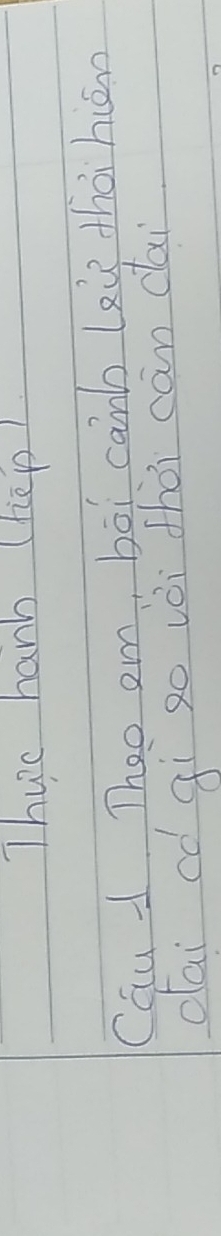 Thực hành (tiếp)
Câu 1. Theo em, bối cảnh lsử thời hiện
đại có gì so với thời cận đại